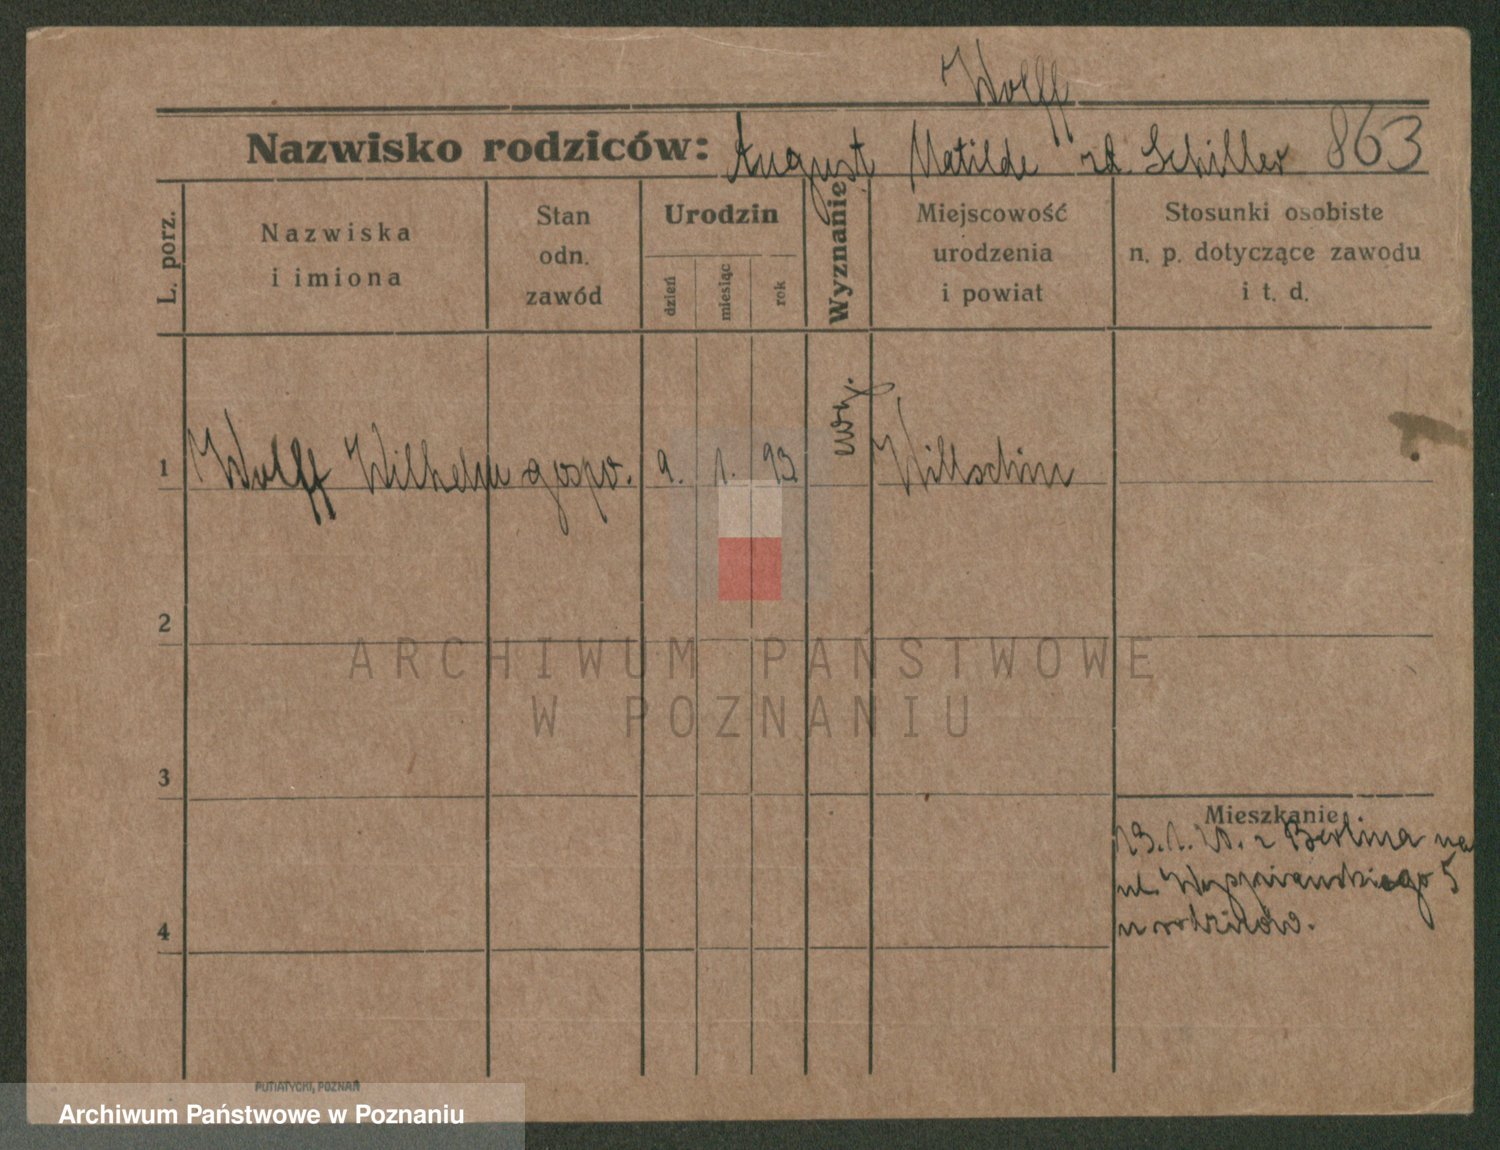 Wolff
Nazwisko rodziców: August Matilde zd. Schiller 863
L. porz.
Nazwiska
i imiona
Stan
odn.
zawód
Urodzin
dzień
miesiąc
rok
Wyznanie
Miejscowość
urodzenia
i powiat
Stosunki osobiste
n. p. dotyczące zawodu
i t. d.
1 Wolff Wilhelm gospo. 9. 1. 93 ewg. Willschin
2
3
4
Mieszkanie:
z Berlina na
ul. Wyspiańskiego 5
u rodziców.
PUTIATYCKI, POZNAŃ
ARCHIWUM PAŃSTWOWE
W POZNANIU
Archiwum Państwowe w Poznaniu